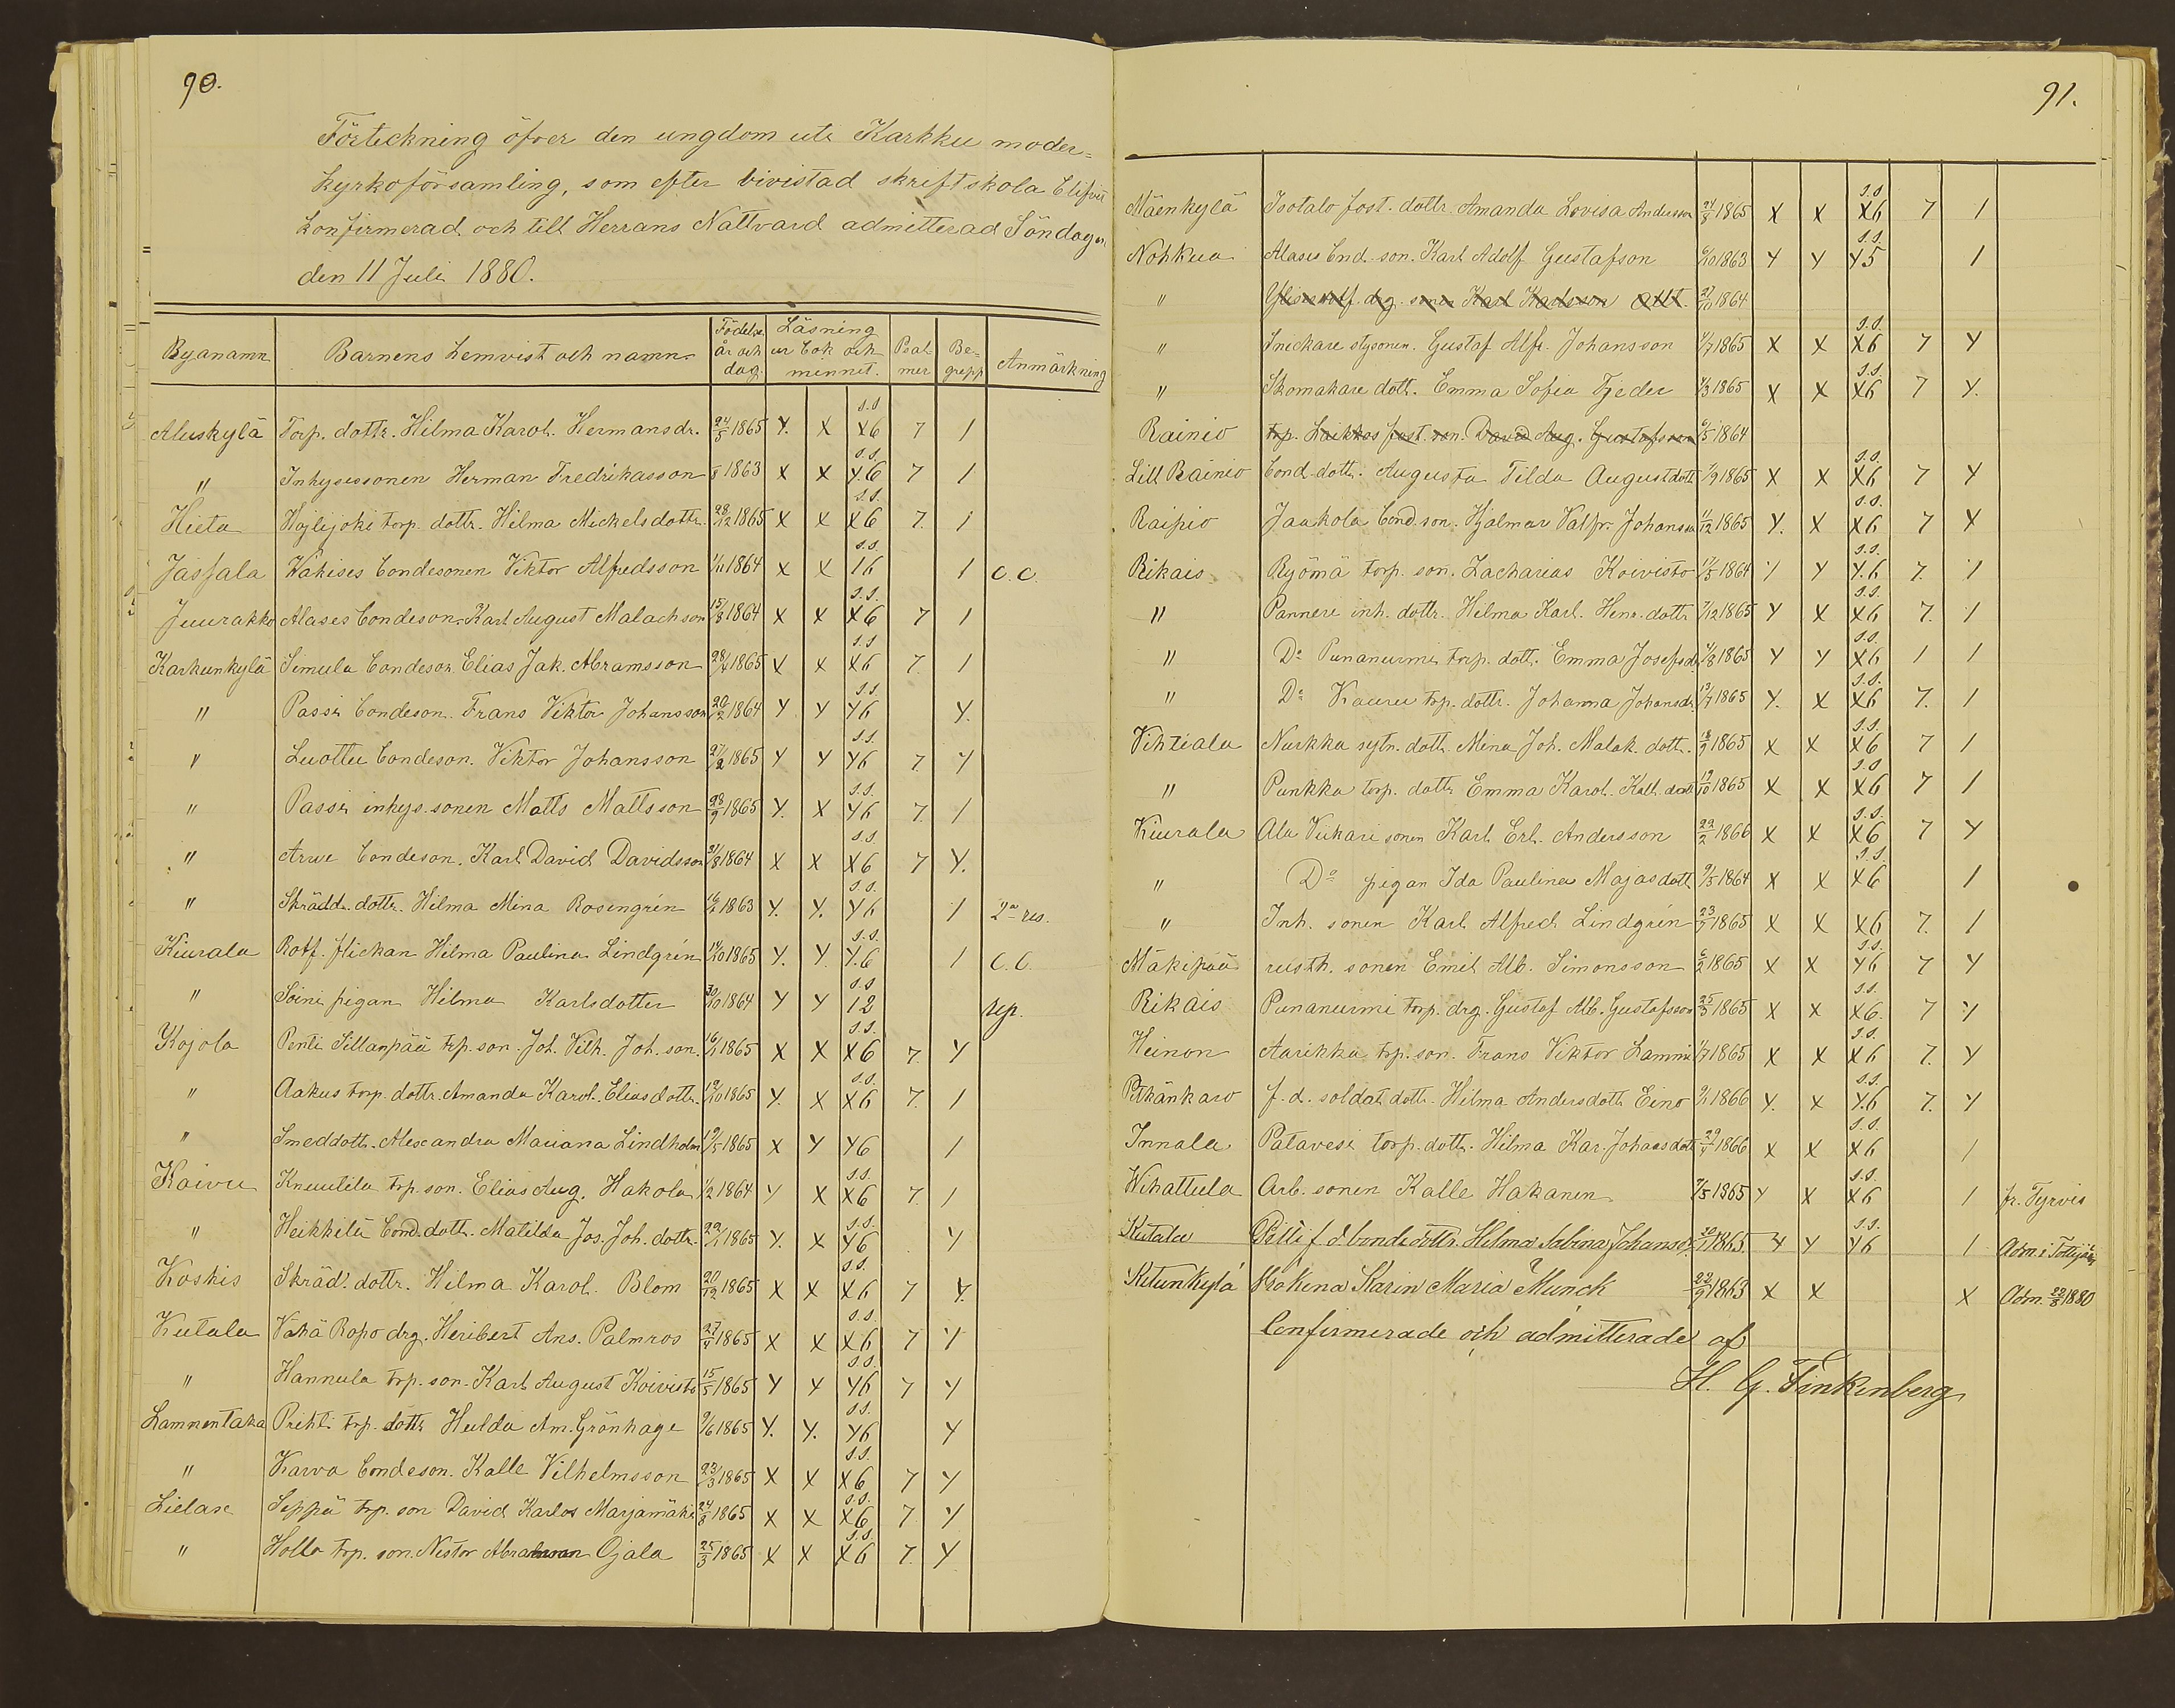 90.
Förteckning öfver den ungdom uti Karkku moder=
kyrkoförsamling, som efter bivistad skriftskola blifvit
konfirmerad och till Herrans Nattvard admitterad Söndagen
den 11 Juli 1880.
Byanamn Barnens hemvist och namn Födelse år och dag. Läsning ur bok och minnet. Psalmer Begrepp Anmärkning
Aluskylä Torp. dottr. Hilma Karol. Hermansdr. 24/5 1865 Y. X s.s. X6 7 1
" Inhysessonen Herman Fredrikasson 1863 X X s.s. Y.6 7 1
Hieta torp. dottr. Hilma Mickelsdottr. 28/12 1865 X X s.s. X6 7. 1
Jassala Wäkises bondesonen Viktor Alfredsson 1/11 1864 X X s.s. 16 1 c.c.
Juurakko Alases bondeson Karl August Malachson 15/8 1864 X X s.s. X6 7 1
Karkunkylä Simula bondeson Elias Jak. Abramsson 28/4 1865 X X s.s. X6 7. 1
" Passi bondeson. Frans Viktor Johansson 20/2 1864 Y Y s.s. Y6 Y.
" Luottu bondeson. Viktor Johansson 27/2 1865 Y Y s.s. Y6 7. Y
" Passi inhys. sonen Matts Mattsson 28/9 1865 Y. X s.s. Y6 7. 1
" Arwe bondeson. Karl David Davidsson 31/8 1864 X X s.s. X6 7 Y.
" Skrädd. dottr. Hilma Mina Rosengrén 1863 Y. Y. s.s. Y6 1
Kiurala Rotf. flickan Hilma Paulina Lindgrén 14/10 1865 Y. Y s.s. Y.6 1 C.C.
" Soini pigan Hilma Karlsdotter 30/10 1864 Y Y s.s. 12 rep.
Kojola Penti Sillanpää trp. son. Joh. Vilh. Joh. son. 16/1 1865 X X s.s. X6 7. Y
" Aakus torp. dottr. Amanda Karol. Eliasdottr. 19/10 1865 Y. X s.s. X6 7. 1
" Smeddottr. Alexandra Mariana Lindholm 19/5 1865 X Y Y6 1
Kaivu Knuutila trp. son. Elias Aug. Hakola 1/2 1864 Y X s.s. X6 7. 1
" Heikkilä bond. dottr. Matilda Jos. Joh. dottr. 22/1 1865 Y. X s.s. Y6 Y
Koskis Skräd. dottr. Hilma Karol. Blom 20/12 1865 X X s.s. X6 7 Y.
Kutala Vähä Ropo drg. Heribert Ans. Palmros 1865 X X s.s. X6 7 Y
" Hannula trp. son. Karl August Koivisto 15/5 1865 Y Y s.s. Y6 7 Y
Lammentaka Prihti trp. dottr Hulda Am. Grönhage 9/6 1865 Y. Y. s.s. Y6 Y
" Karva bondeson. Kalle Vilhelmsson 23/3 1865 X X s.s. X6 7 Y
Lielax Seppä trp. son David Karlos Marjamäki 24/8 1865 X X s.s. X6 7. Y
" Hollo trp. son. Nestor Ojala 25/3 1865 X X s.s. X6 7. Y
91.
Mäenkylä Isotalo fost. dottr. Amanda Lovisa Andersson 24/5 1865 X X s.s. X6 7 1
Nohkua Alases bnd. son. Karl Adolf Gustafson 6/10 1863 Y Y s.s. Y5 1
" drg. sonen Karl Karlsson 27/10 1864
" Snickare stysonen. Gustaf Alfr. Johansson 1/7 1865 X X s.s. X6 7 Y
" Skomakare dott. Emma Sofia Fjeder 1/3 1865 X X s.s. X6 7 Y.
Rainio trp. Laikkos fost. son. David Aug. Gustafsson 6/5 1864
Lill Rainio bond. dottr. Augusta Tilda Augustdott 7/9 1865 X X s.s. X6 7 Y
Raipio Jaakola bond. son. Hjalmar Valfr. Johansson 11/12 1865 Y. X s.s. X6 7 X
Rikais Ryömä torp. son. Zacharias Koivisto 17/5 1864 1 Y s.s. Y.6 7. 1
" Pannere inh. dottr. Hilma Karl. Henr. dottr 7/12 1865 Y X s.s. X6 7. 1
" Do Punanurmi torp. dott. Emma Josefsdr 1/8 1865 Y Y s.s. X6 1 1
" Do Kauru trp. dottr. Johanna Johansdr 13/7 1865 Y. X s.s. X6 7. 1
Vihtiala Nurkka sytn. dottr. Mina Joh. Malak. dottr. 18/9 1865 X X s.s. X6 7 1
" Punkka torp. dottr Emma Karol. Kall. dott 19/10 1865 X X s.s. X6 7 1
Kiurala Ala Viikari sonen Karl Erl. Andersson 22/2 1866 X X s.s. X6 7 Y
" Do pigan Ida Paulina Majasdott 9/5 1864 X X s.s. X6 1
" Inh. sonen Karl Alfred Lindgrén 1865 X X X6 7. 1
Mäkipää rusth. sonen Emil Alb. Simonsson 6/2 1865 X X s.s. Y6 7 Y
Rikais Punanurmi torp. drg. Gustaf Alb. Gustafsson 25/3 1865 X X s.s. X6. 7 Y
Heinon Aarikka trp. son. Frans Viktor Lammi 1/7 1865 X X s.s. X6 7. Y
Pitkänkaro f.d. soldat dottr. Hilma Andersdottr Eino 9/1 1866 Y. X s.s. Y.6 7. Y
Innala Palavesi torp. dottr. Hilma Kar. Johansdott 1866 X X s.s. X6 1
Wihattula Arb. sonen Kalle Hakanen 9/5 1865 Y X s.s. X6 1 fr. Tyrvis
Kutala f.d. bondedottr. Hilma Sabina Johansdr. 1865. Y Y s.s. Y6 1 Adm. i
Kutunkylä Fröken Karin Maria Munck 22/9 1863 X X X Adm. 22/8 1880
Confirmerade och admitterade af
H. G. Finkenberg